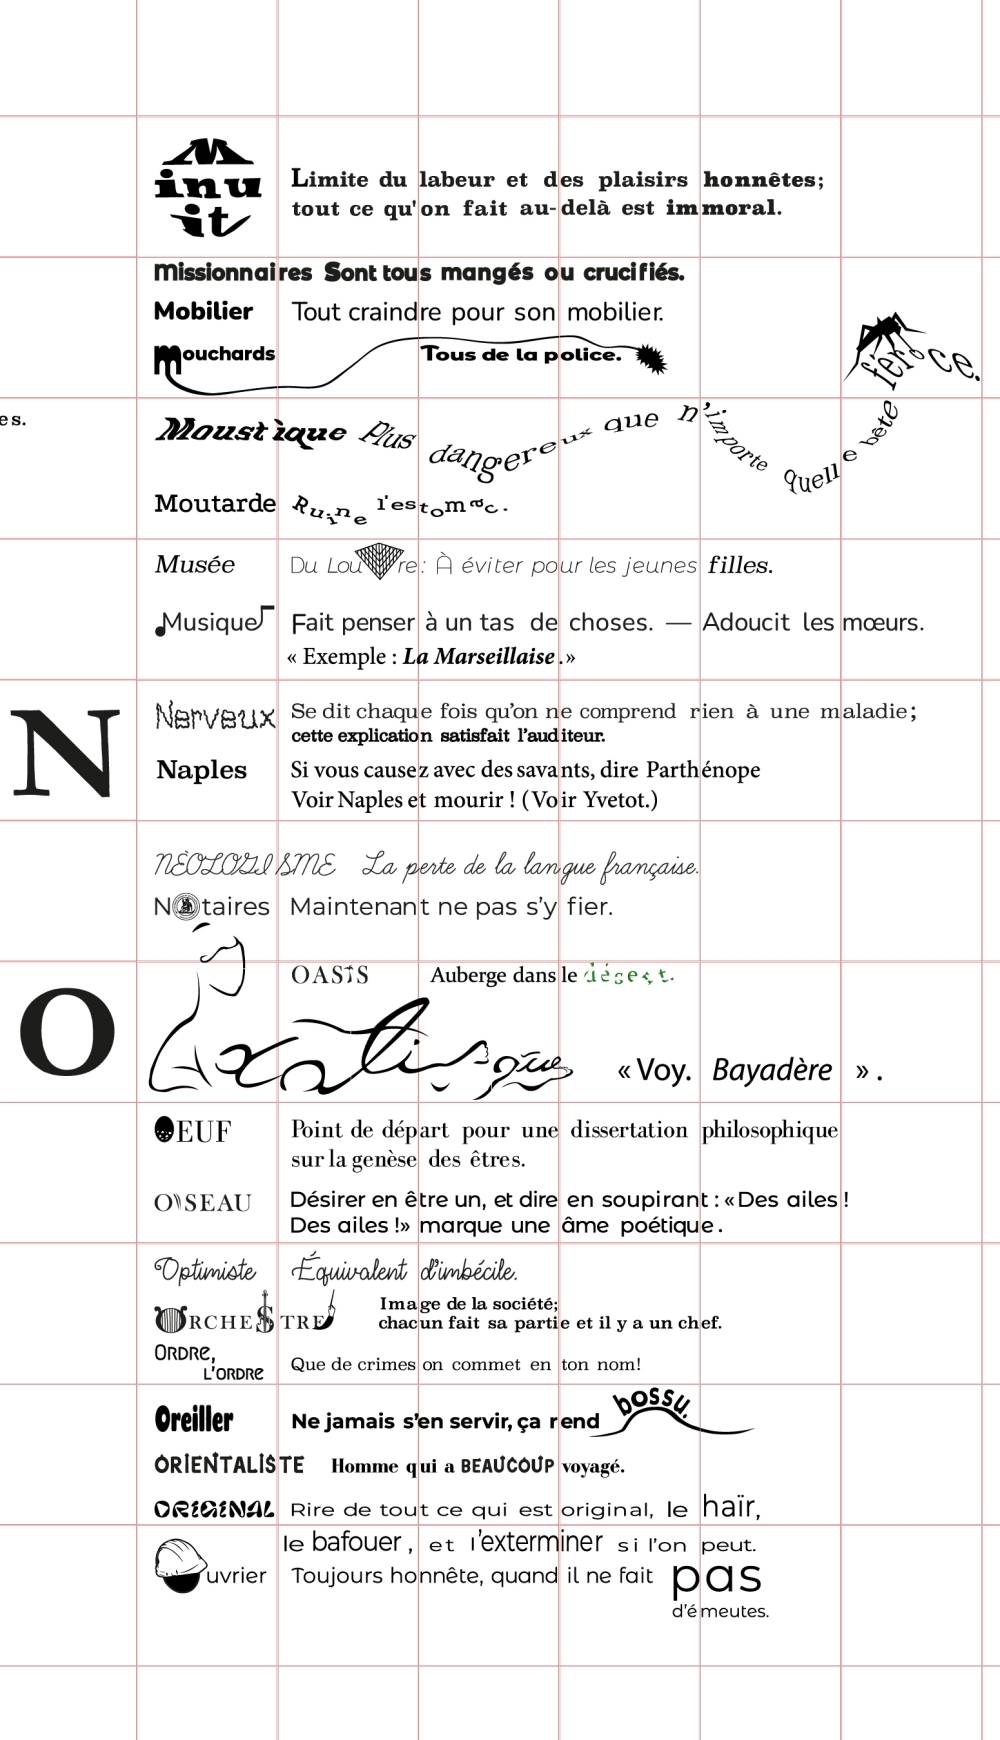 Minuit Limite du labeur et des plaisirs honnêtes;
tout ce qu'on fait au-delà est immoral.
Missionnaires Sont tous mangés ou crucifiés.
Mobilier Tout craindre pour son mobilier.
Mouchards Tous de la police.
es.
Moustique Plus dangereux que n'importe quelle bête féroce.
Moutarde Ruine l'estomac.
Musée Du Louvre: À éviter pour les jeunes filles.
Musique Fait penser à un tas de choses. — Adoucit les mœurs.
« Exemple : La Marseillaise.»
N
Nerveux Se dit chaque fois qu'on ne comprend rien à une maladie;
cette explication satisfait l'auditeur.
Naples Si vous causez avec des savants, dire Parthénope
Voir Naples et mourir ! (Voir Yvetot.)
NÈOLOGISME La perte de la langue française.
Notaires Maintenant ne pas s'y fier.
O
OASIS Auberge dans le désert.
Oxalisque «Voy. Bayadère ».
OEUF Point de départ pour une dissertation philosophique
sur la genèse des êtres.
OISEAU Désirer en être un, et dire en soupirant : «Des ailes !
Des ailes !» marque une âme poétique.
Optimiste Équivalent d'imbécile.
ORCHESTRE Image de la société;
chacun fait sa partie et il y a un chef.
ORDRE,
L'ORDRE Que de crimes on commet en ton nom!
Oreiller Ne jamais s'en servir, ça rend bossu.
ORIENTALISTE Homme qui a BEAUCOUP voyagé.
ORIGINAL Rire de tout ce qui est original, le haïr,
le bafouer, et l'exterminer si l'on peut.
Ouvrier Toujours honnête, quand il ne fait pas
d'émeutes.